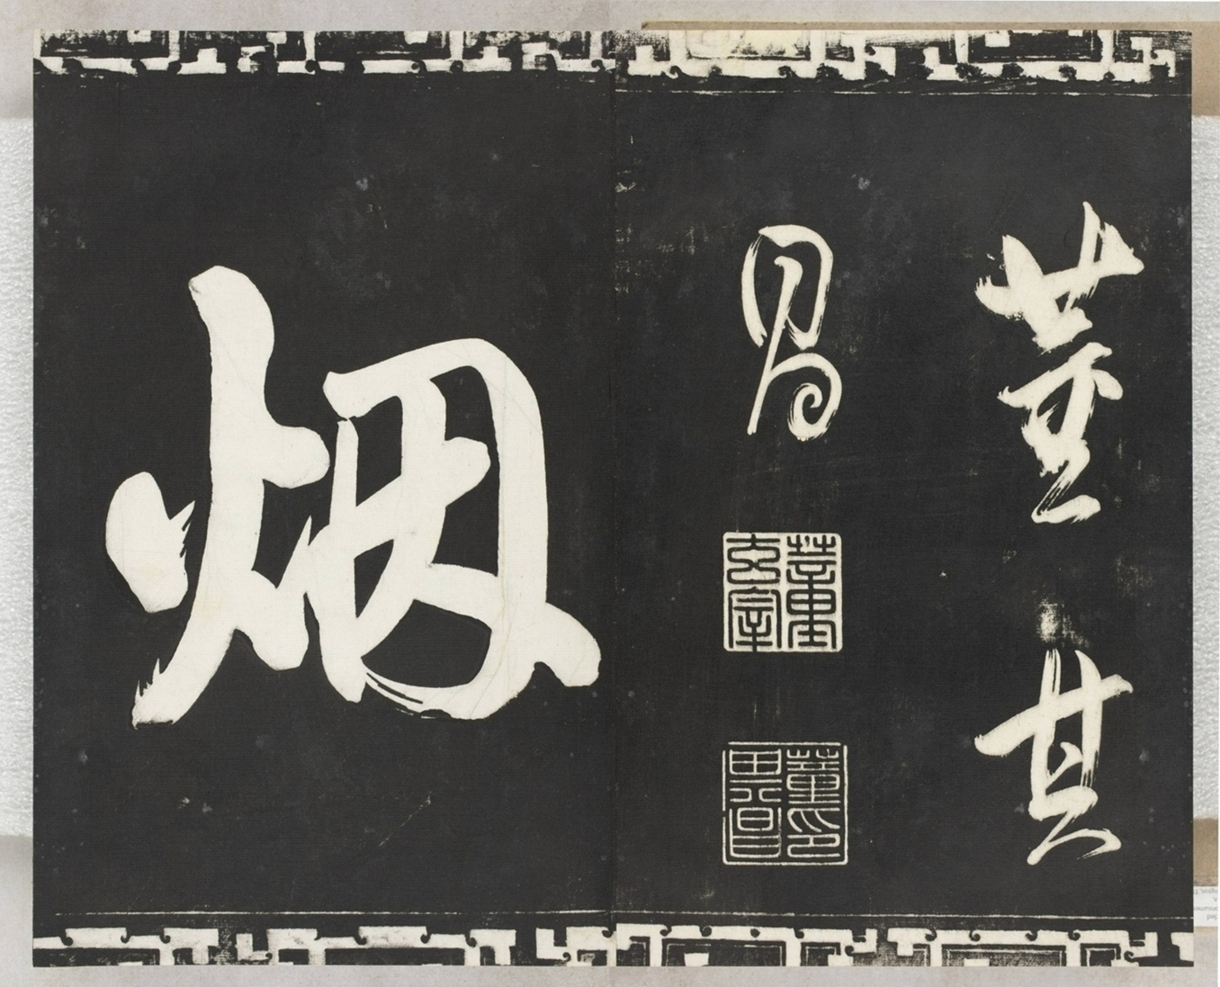 董其
昌
董玄宰
董其昌印
烟